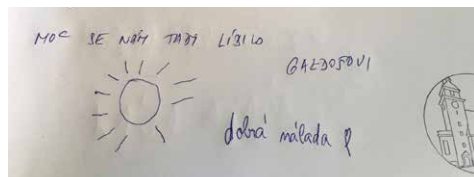 MOC SE NÁM TADY LÍBILO
GAZDOŠOVI
dobrá nálada